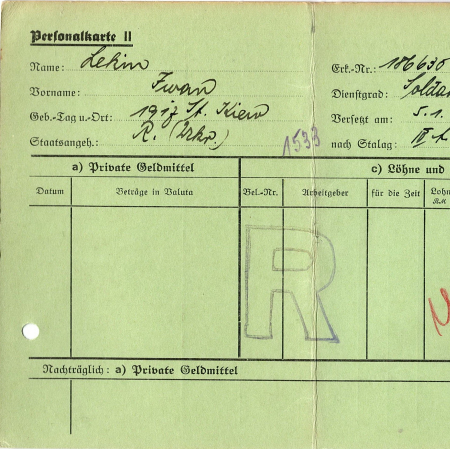 Personalkarte II
Name: Lekin
Erk.-Nr.: 186636
Vorname: Iwan
Dienstgrad: Soldat
Geb.-Tag u. Ort: 1917 St. Kiew
Versetzt am: 5.1.
Staatsangeh.: R. (Ukr.)
1533
nach Stalag: IV
a) Private Geldmittel
c) Löhne und
Datum
Beträge in Valuta
Bel.-Nr.
Arbeitgeber
für die Zeit
Lohn
RM
R
Nachträglich: a) Private Geldmittel